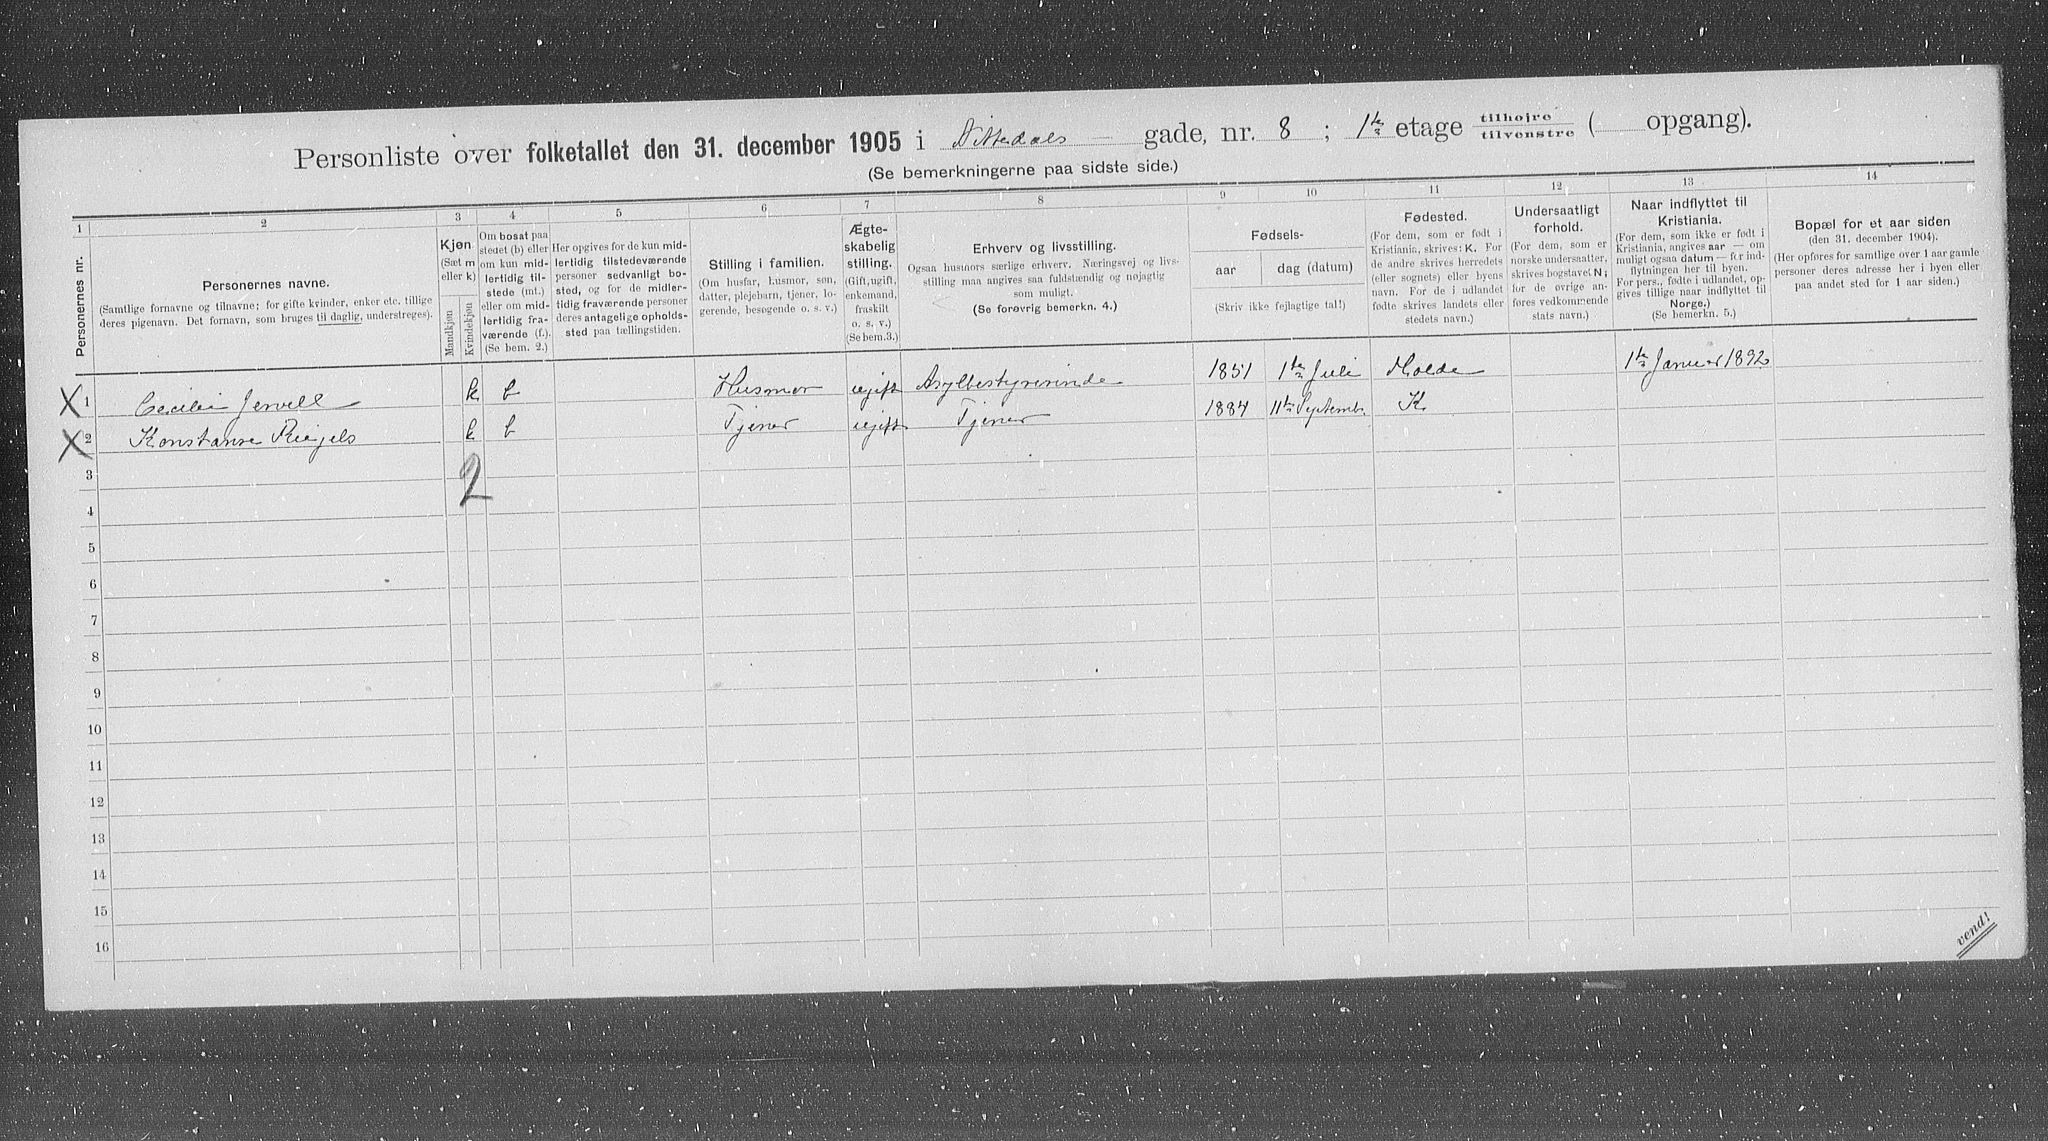 Personliste over folketallet den 31. december 1905 i Nittedals gade, nr. 8 ; 1ste etage tilhøjre / tilvenstre ( opgang).
(Se bemerkningerne paa sidste side.)
1 2 3 4 5 6 7 8 9 10 11 12 13 14
Personernes nr.
Personernes navne.
(Samtlige fornavne og tilnavne; for gifte kvinder, enker etc. tillige
deres pigenavn. Det fornavn, som bruges til daglig, understreges).
Kjøn.
(Sæt m
eller k)
Mandkjøn
Kvindekjøn
Om bosat paa
stedet (b) eller
om kun mid-
lertidig til-
stede (mt.)
eller om mid-
lertidig fra-
værende (f.).
(Se bem. 2.)
Her opgives for de kun mid-
lertidig tilstedeværende
personer sedvanligt bo-
sted, og for de midler-
tidig fraværende personer
deres antagelige opholds-
sted paa tællingstiden.
Stilling i familien.
(Om husfar, husmor, søn,
datter, plejebarn, tjener, lo-
gerende, besøgende o. s. v.)
Ægte-
skabelig
stilling.
(Gift, ugift,
enkemand,
fraskilt
o. s. v.)
(Se bem.3.)
Erhverv og livsstilling.
Ogsaa husmors særlige erhverv. Næringsvej og livs-
stilling maa angives saa fuldstændig og nøjagtig
som muligt.
(Se forøvrig bemerkn. 4.)
Fødsels-
aar dag (datum)
(Skriv ikke fejlagtige tal!)
Fødested.
(For dem, som er født i
Kristiania, skrives: K. For
de andre skrives herredets
(eller sognets) eller byens
navn. For de i udlandet
fødte skrives landets eller
stedets navn.)
Undersaatligt
forhold.
(For dem, som er
norske undersaatter,
skrives bogstavet N;
for de øvrige an-
føres vedkommende
stats navn.)
Naar indflyttet til
Kristiania.
(For dem, som ikke er født i
Kristiania, angives aar — om
muligt ogsaa datum — for ind-
flytningen her til byen.
For pers., fødte i udlandet, op-
gives tillige naar indflyttet til
Norge.)
(Se bemerkn. 5.)
Bopæl for et aar siden
(den 31. december 1904).
(Her opføres for samtlige over 1 aar gamle
personer deres adresse her i byen eller
paa andet sted for 1 aar siden.)
X 1 Cecilie Jervell k. b Husmor ugift Asylbestyrerinde 1851 1ste Juli Molde 1ste Januar 1892
X 2 Konstanse Riegels k b Tjener ugift Tjener 1884 11te Septembr. K.
3
2
4
5
6
7
8
9
10
11
12
13
14
15
16
vend!